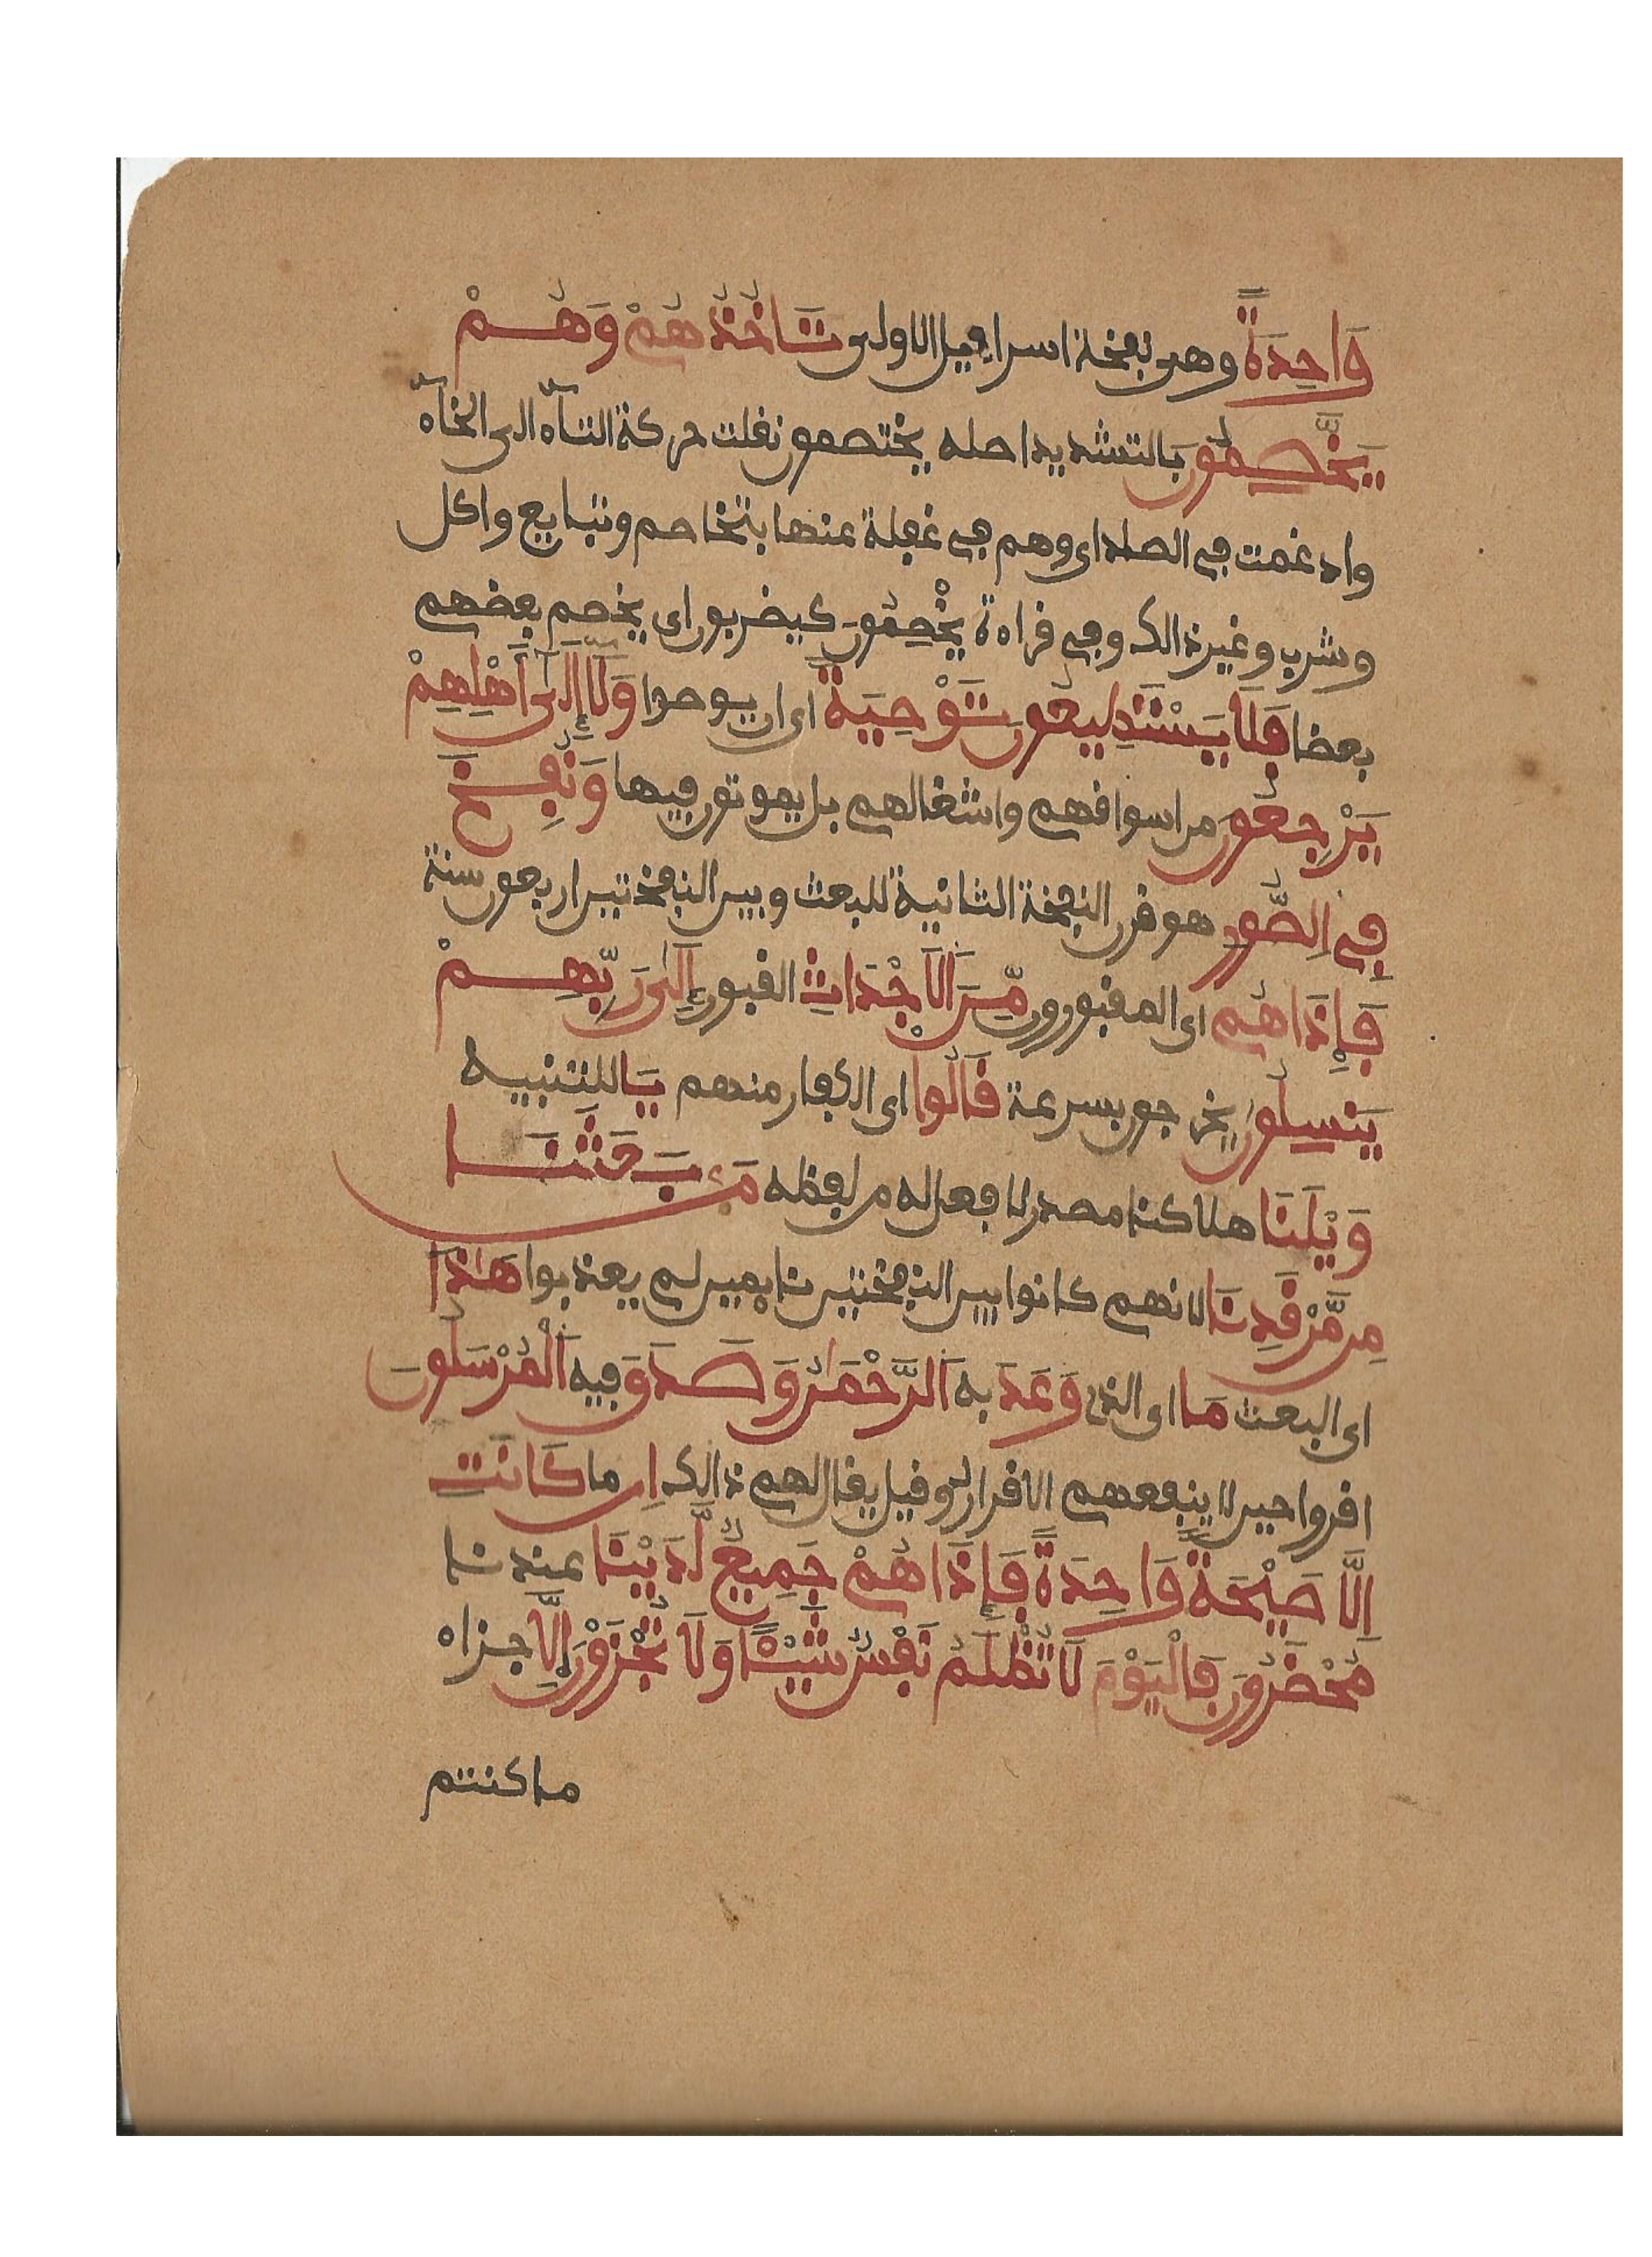 وَاحِدَةً وهى نفخة اسرافيل الاولى تَاخُذُهُمْ وَهُمْ
يَخَصِّمُونَ بالتشديد اصله يختصمون نقلت حركة التآء الى الخآء
وادغمت في الصاد اى وهم في غفلة عنها بتخاصم وتبايع واكل
وشرب وغير ذالك وفي قراءة يَخْصِمُونَ كيضربون اى يخصم بعضهم
بعضا فَلَا يَسْتَطِيعُونَ تَوْصِيَةً اى ان يوصوا وَلَا إِلَىٰ أَهْلِهِمْ
يَرْجِعُونَ من اسواقهم واشغالهم بل يموتون فيها وَنُفِخَ
فِي الصُّورِ هو قرن النفخة الثانية للبعث وبين النفختين اربعون سنة
فَإِذَا هُم اى المقبورون مِّنَ الَاجْدَاثِ القبور إِلَىٰ رَبِّهِمْ
يَنسِلُونَ يخرجون بسرعة قَالُوا اى الكفار منهم يَا للتنبيه
وَيْلَنَا هلاكنا مصدر لا فعل له من لفظه مَنۢ بَعَثَنَا
مِن مَّرْقَدِنَا لانهم كانوا بين النفختين نايمين لم يعذبوا هَٰذَا
اى البعث مَا اى الذى وَعَدَ به اَلرَّحْمَٰنُ وَصَدَقَ فيه اَلْمُرْسَلُونَ
اقروا حين لا ينفعهم الاقرار وقيل يقال لهم ذالك اِن ما كَانَتِ
الَّا صَيْحَةً وَاحِدَةً فَإِذَا هُمْ جَمِيعٌ لَّدَيْنَا عندنا
مُحْضَرُونَ فَالْيَوْمَ لَا تُظْلَمُ نَفْسٌ شَيْـًٔا وَلَا تُجْزَوْنَ إِلَّا جزاء
ما كنتم